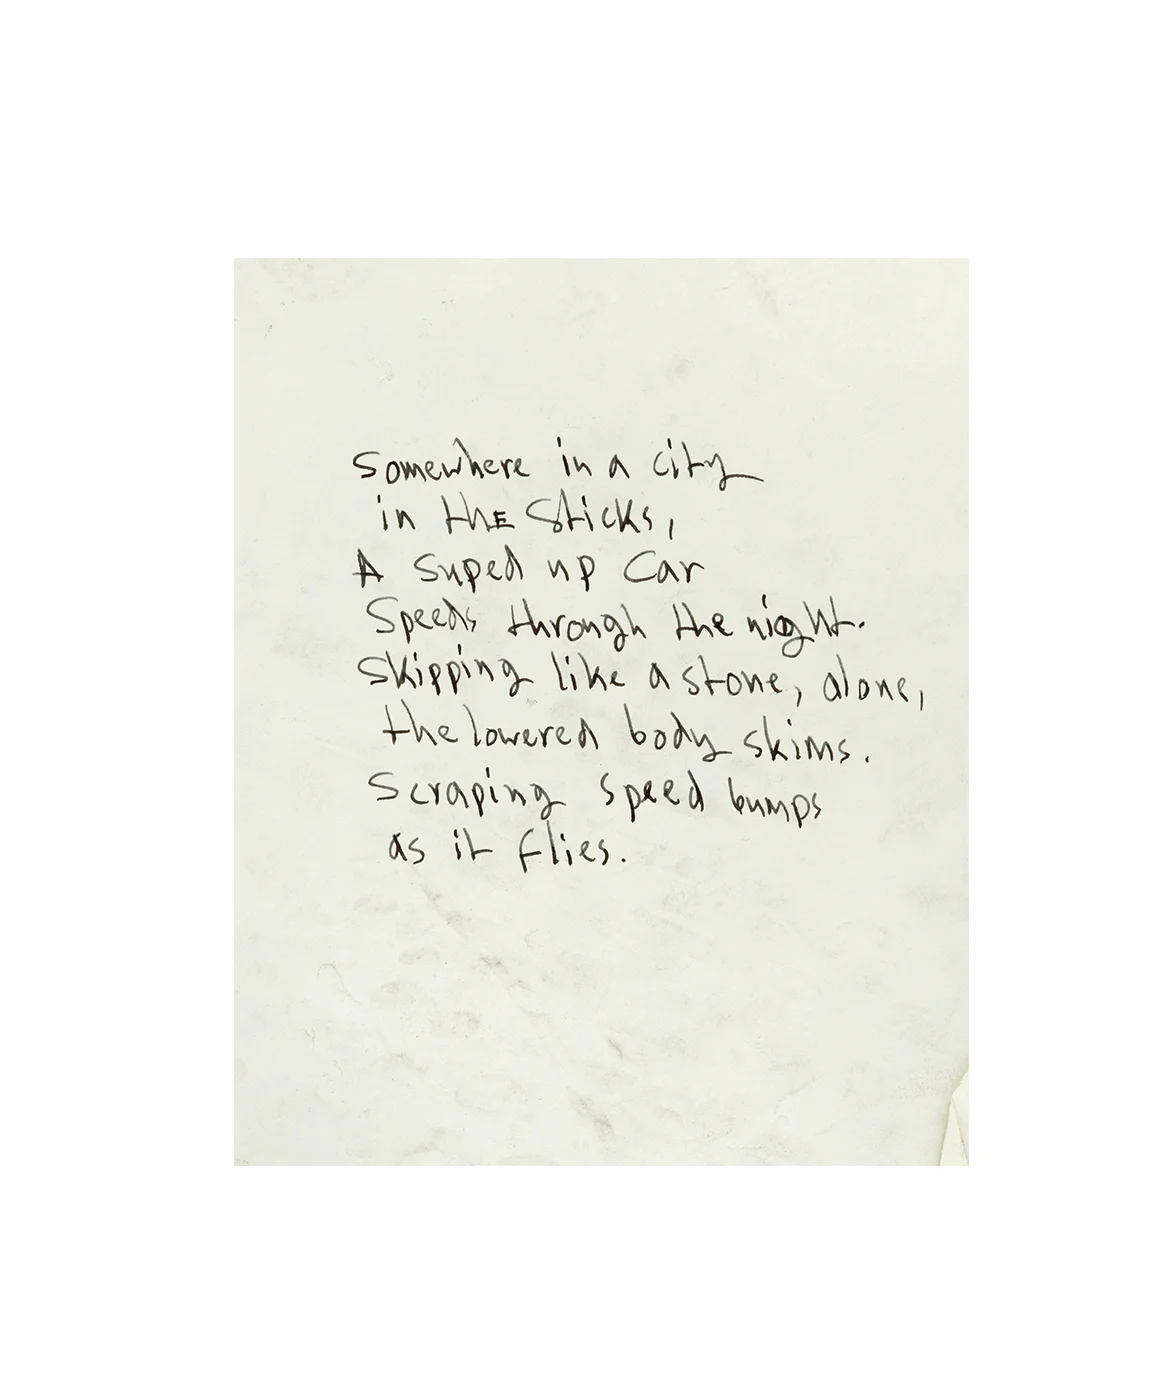 Somewhere in a city
in the Sticks,
A suped up Car
Speeds through the night.
Skipping like a stone, alone,
the lowered body skims.
Scraping speed bumps
as it flies.